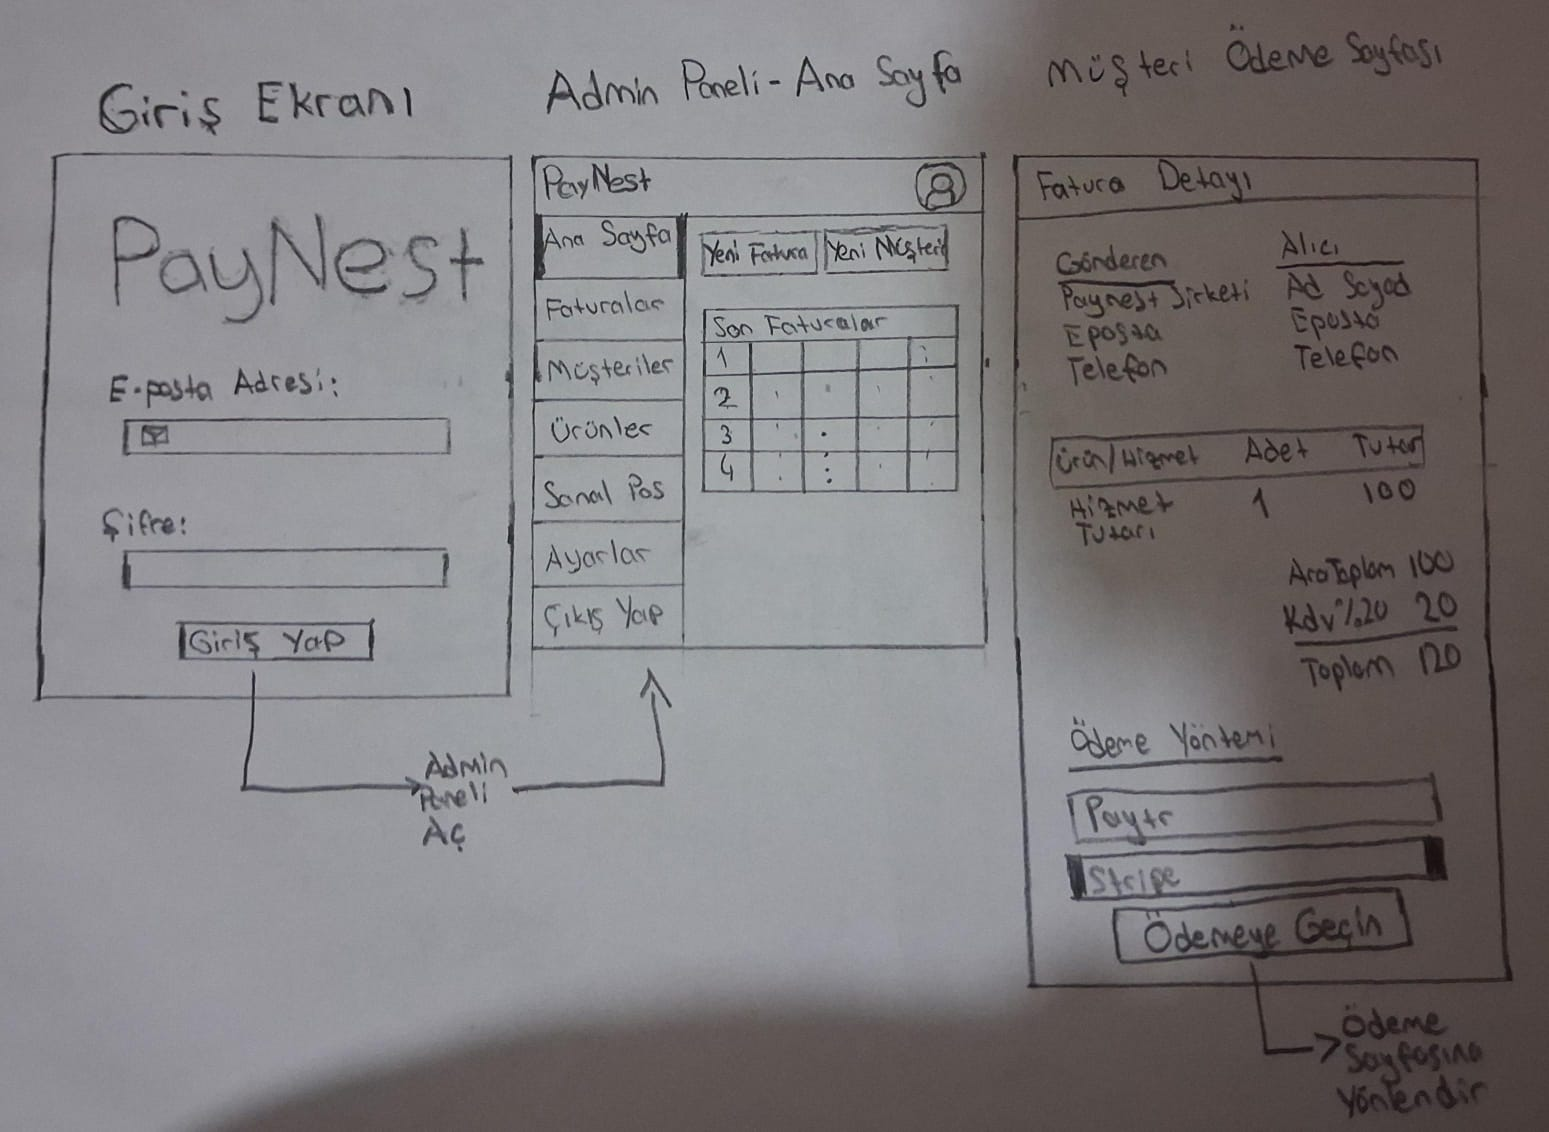 Giriş Ekranı
PayNest
E-posta Adresi:
Şifre:
Giriş Yap
Admin
Paneli
Aç
Admin Paneli - Ana Sayfa
PayNest
Ana Sayfa
Faturalar
Müşteriler
Ürünler
Sanal Pos
Ayarlar
Çıkış Yap
Yeni Fatura
Yeni Müşteri
Son Faturalar
1
2
3
4
Müşteri Ödeme Sayfası
Fatura Detayı
Gönderen
Paynest Şirketi
Eposta
Telefon
Alıcı
Ad Soyad
Eposta
Telefon
Ürün/Hizmet Adet Tutar
Hizmet 1 100
Tutarı
Ara Toplam 100
Kdv %20 20
Toplam 120
Ödeme Yöntemi
Paytr
Stripe
Ödemeye Geçin
Ödeme
Sayfasına
Yönlendir